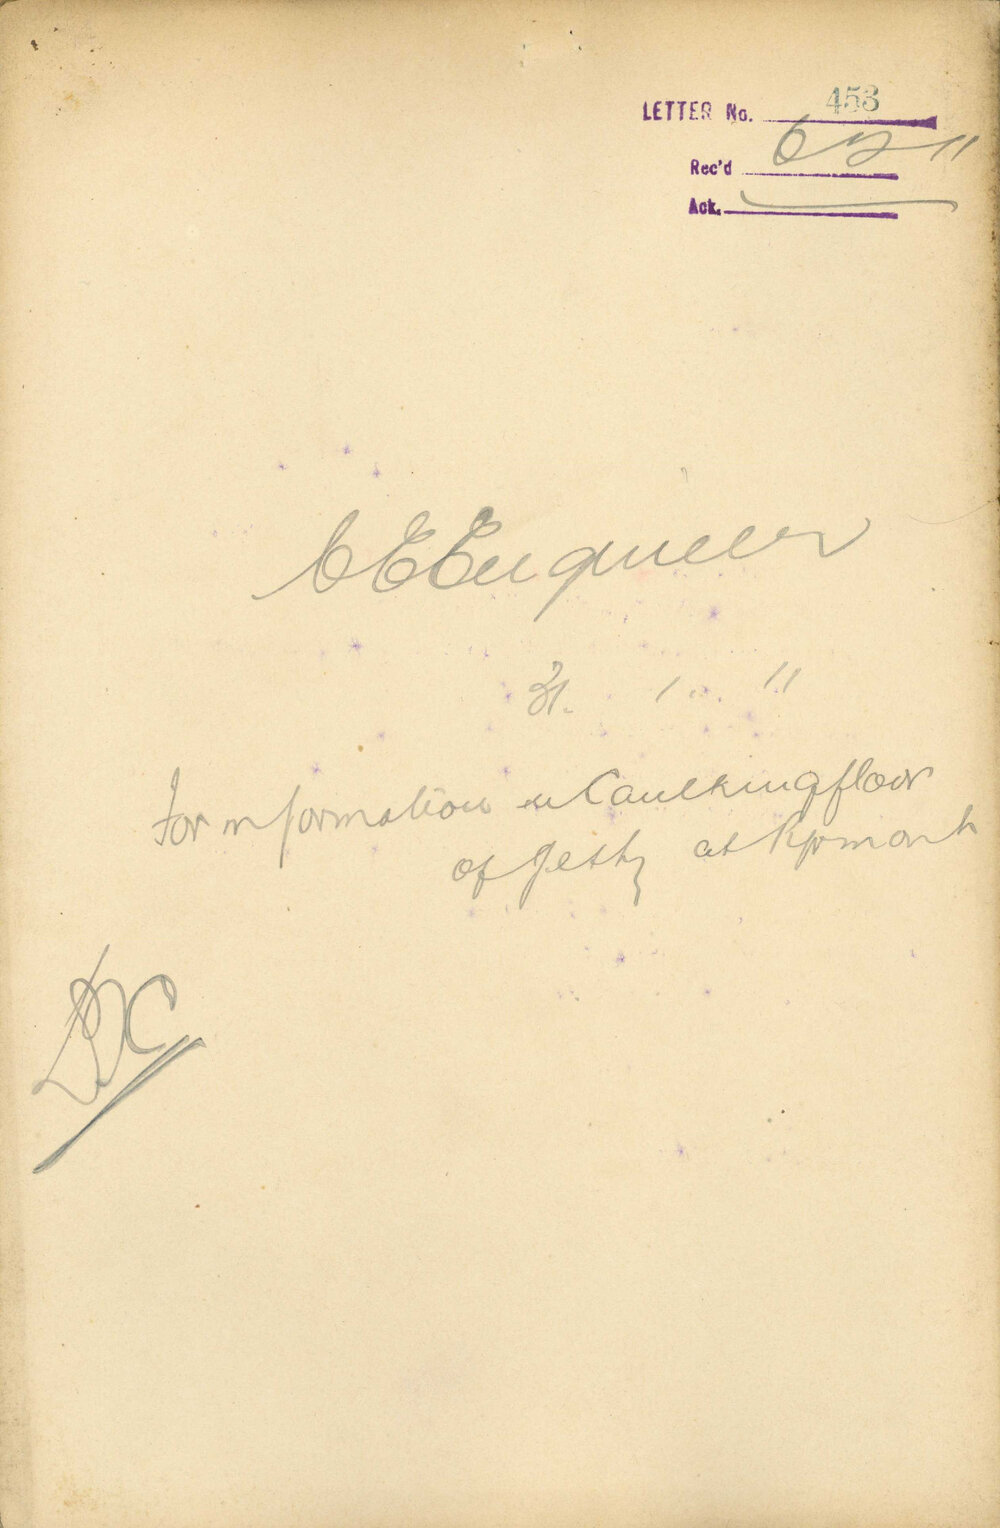 LETTER No. 453
Rec'd 6 2 11
Ack.
C E Engineer
31. 1. 11
For information re Caulking floor
of Jetty at Kpmont